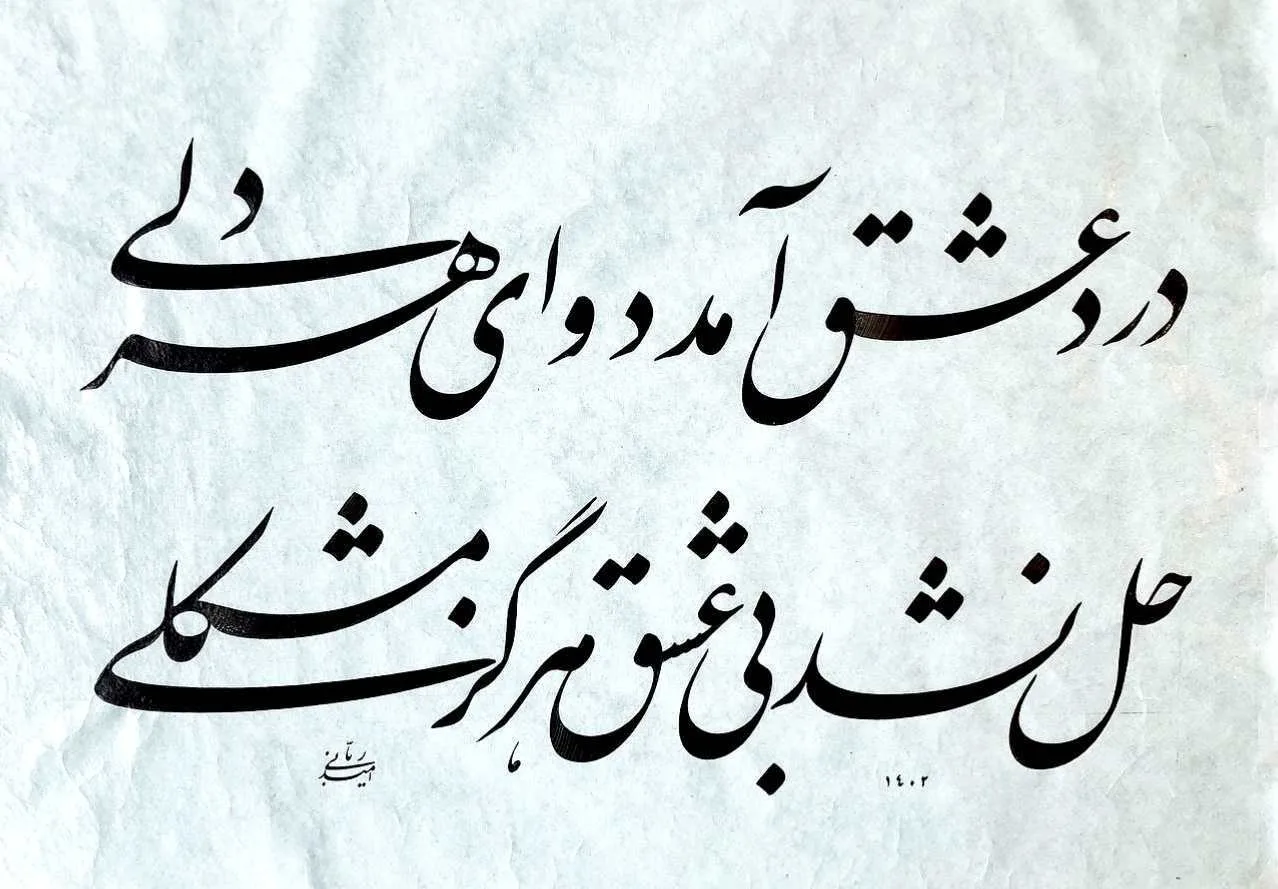 درد عشق آمد دوای هر دلی
حل نشد بی عشق هرگز مشکلی
امید ربانی
۱۴۰۲